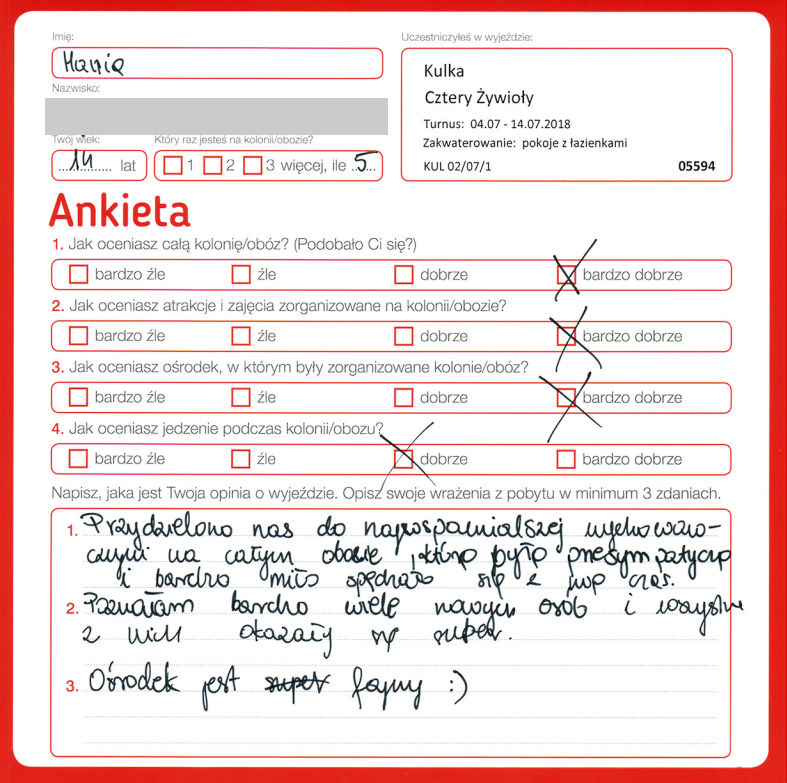 Imię:
Hania
Nazwisko:
Twój wiek:
Który raz jesteś na kolonii/obozie?
14 lat
1 2 3 więcej, ile 5
Uczestniczyłeś w wyjeździe:
Kulka
Cztery Żywioły
Turnus: 04.07 - 14.07.2018
Zakwaterowanie: pokoje z łazienkami
KUL 02/07/1 05594
Ankieta
1. Jak oceniasz całą kolonię/obóz? (Podobało Ci się?)
bardzo źle źle dobrze bardzo dobrze
2. Jak oceniasz atrakcje i zajęcia zorganizowane na kolonii/obozie?
bardzo źle źle dobrze bardzo dobrze
3. Jak oceniasz ośrodek, w którym były zorganizowane kolonie/obóz?
bardzo źle źle dobrze bardzo dobrze
4. Jak oceniasz jedzenie podczas kolonii/obozu?
bardzo źle źle dobrze bardzo dobrze
Napisz, jaka jest Twoja opinia o wyjeździe. Opisz swoje wrażenia z pobytu w minimum 3 zdaniach.
1. Przydzielono nas do najwspanialszej wychowaw-
czyni na całym obozie, która była przesympatyczna
i bardzo miło spędzało się z nią czas.
2. Poznałam bardzo wiele nowych osób i wszystkie
z nich okazały się super.
3. Ośrodek jest super fajny :)